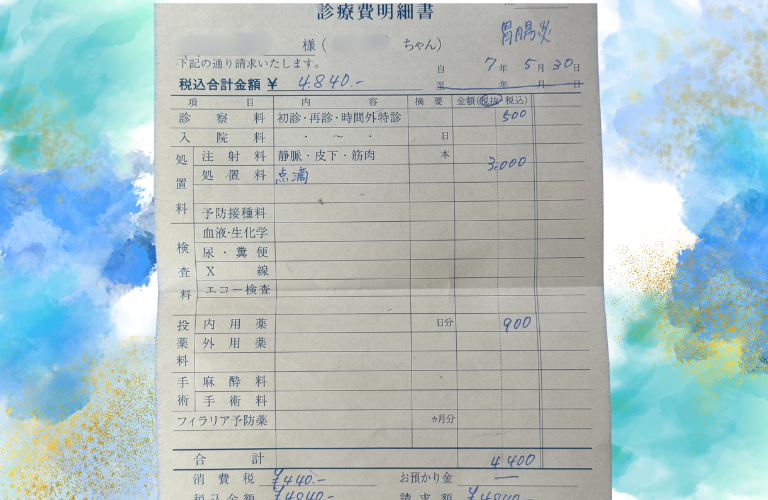 診療費明細書
胃腸炎
様（　　ちゃん）
下記の通り請求いたします。
自 7年 5月 30日
税込合計金額 ¥ 4.840.-
至 年 月 日
項 目 内 容 摘 要 金額(税抜・税込)
診察料 初診・再診・時間外特診 500
入院料 ・ ～ ・ 日
処置料 注射料 静脈・皮下・筋肉 本
処置料 点滴 3,000
予防接種料
検査料 血液・生化学
尿・糞便
X線
エコー検査
投薬料 内用薬 日分 900
外用薬
手術 麻酔料
手術料
フィラリア予防薬 ヵ月分
合計 4.400
消費税 ¥440.- お預かり金 ー
税込金額 ¥4840.- 請求額 ¥4840.-